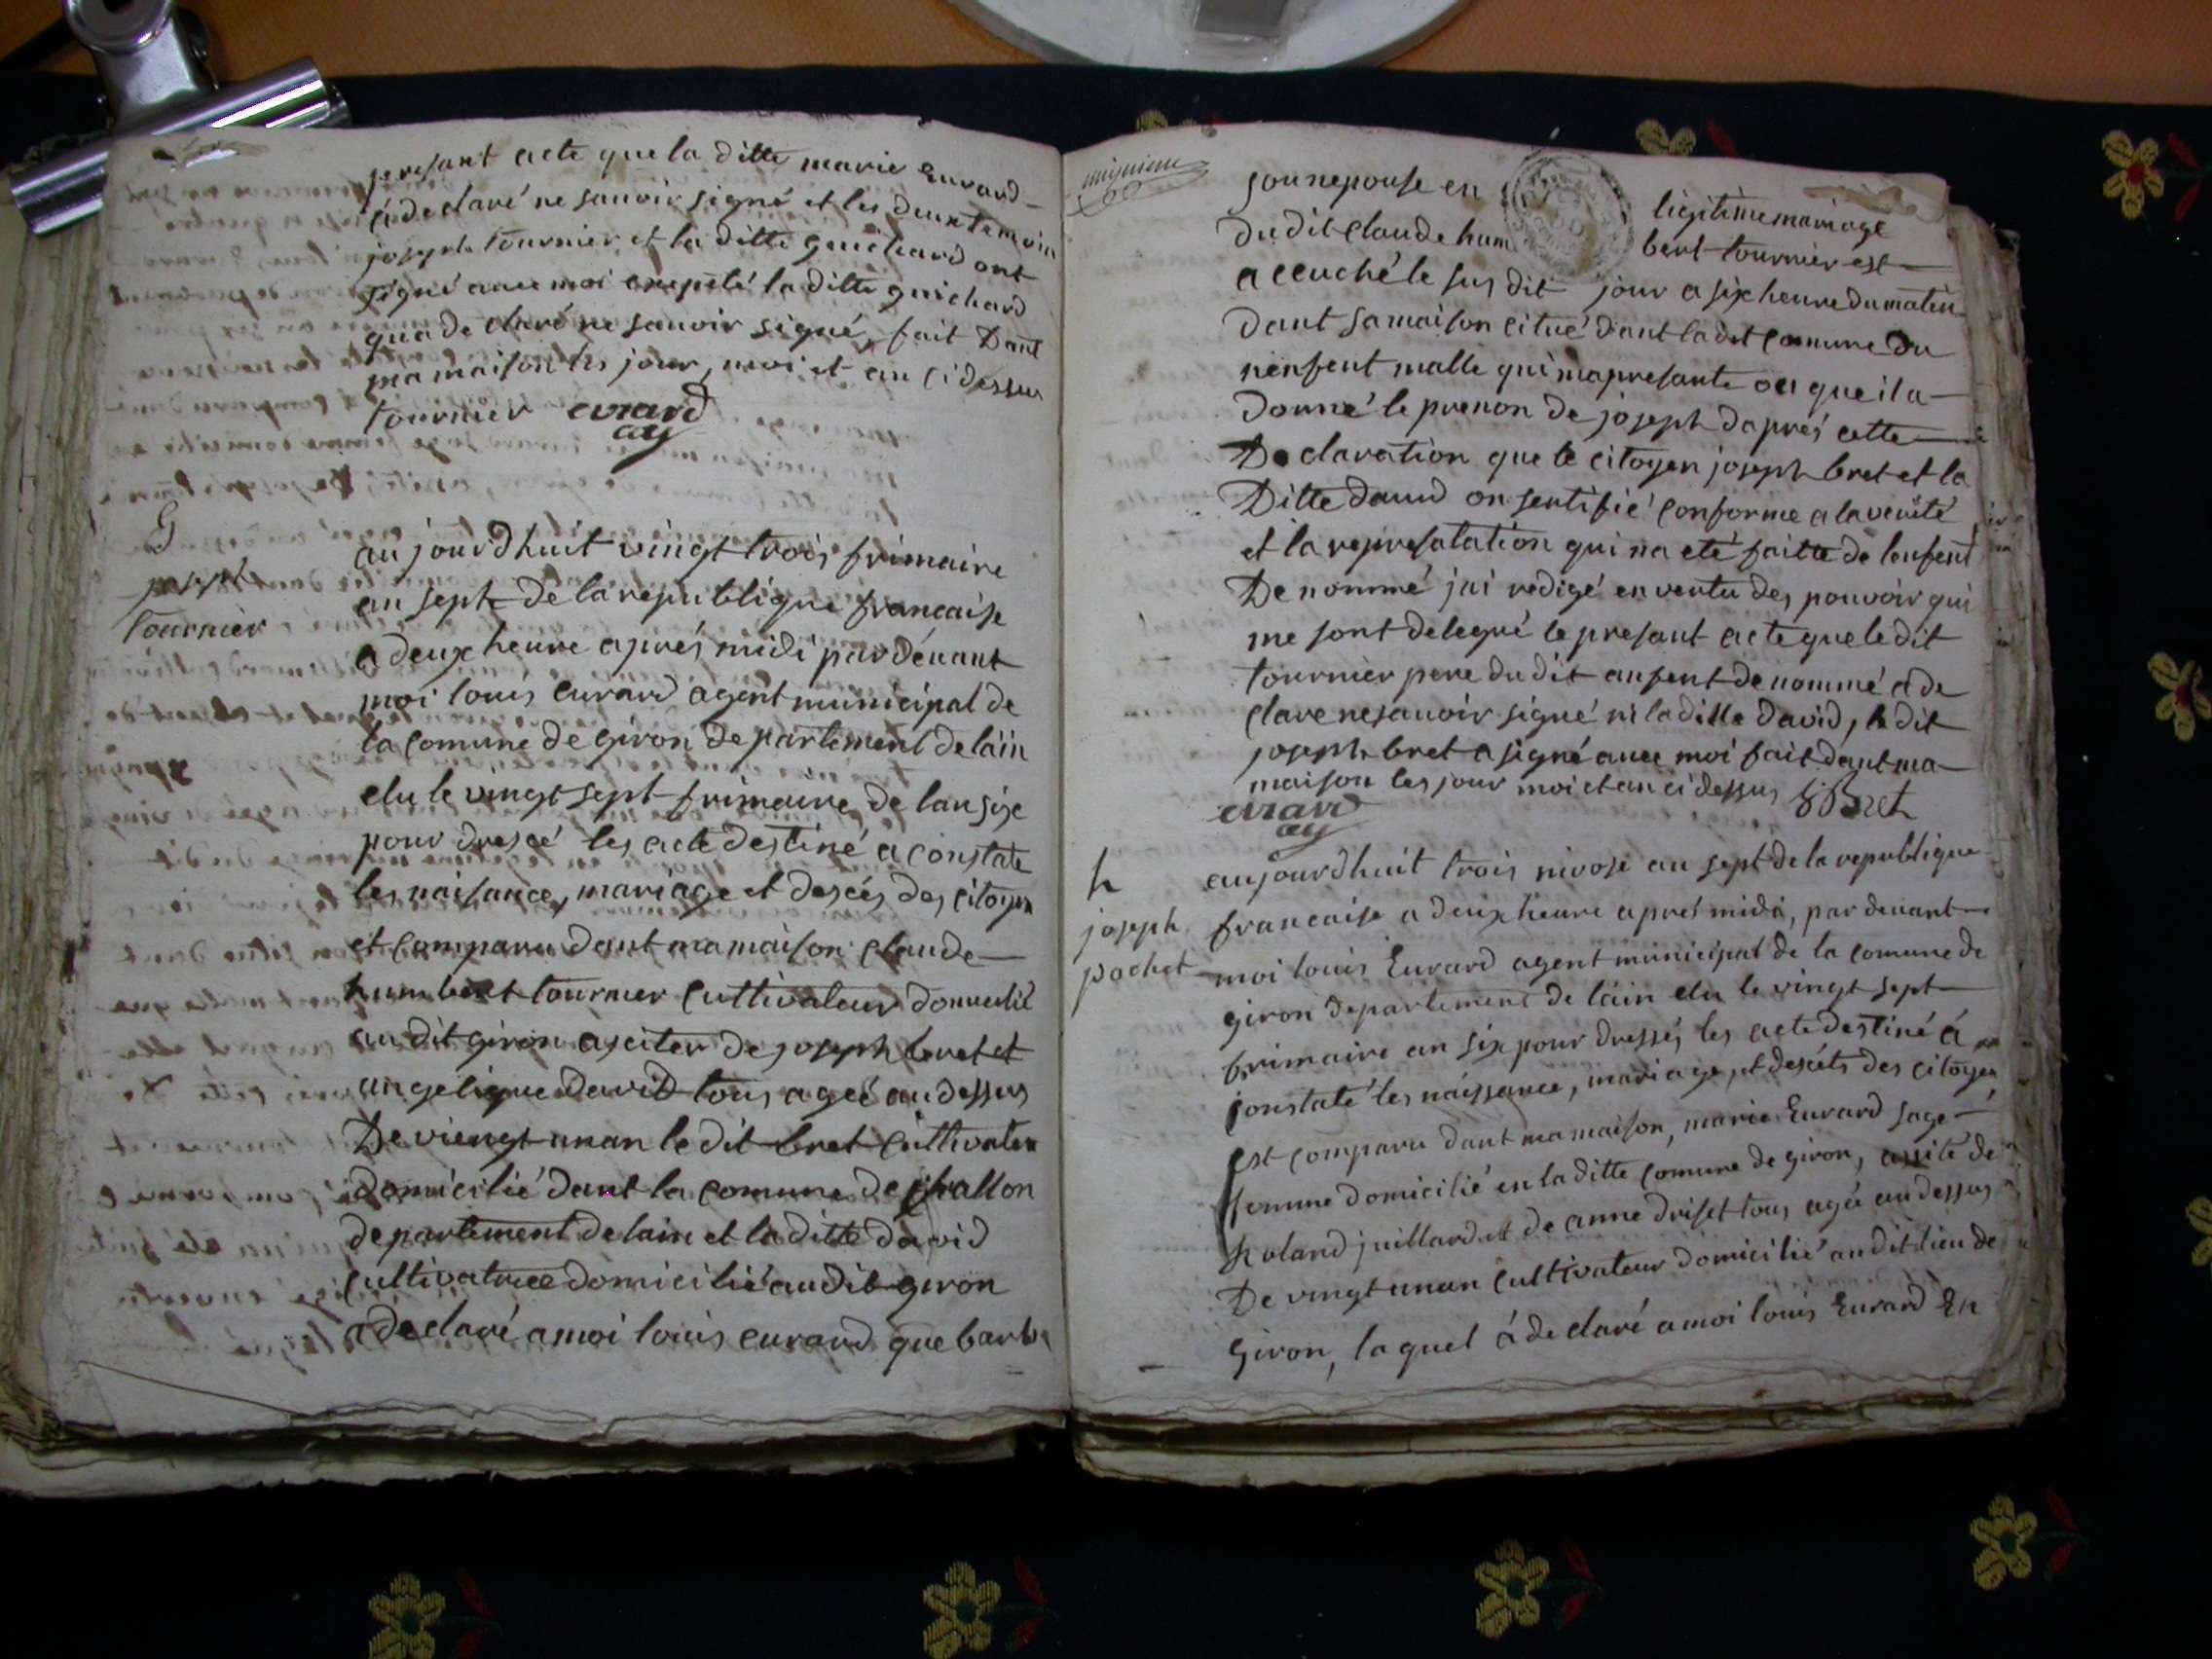 presant acte que la ditte marie Eurard
à declaré ne savoir signé et les deux temoin
joseph tournier et la ditte guichard ont
signé avec moi exepté la ditte guichard
qua declaré ne savoir signé, fait Dant
ma maison les jour, moi et an ci dessus
tournier evrard
ag
G
joseph
tournier
aujourdhuit vingt trois frimaire
an sept de la republique francaise
a deux heure aprés midi par dévant
moi louis eurard agent municipal de
la comune de giron departement de lain
elu le vingt sept frimaire de lan six
pour dressé les acte destiné a constate
les naisance, mariage et descés des citoyen
et comparu dant ma maison claude
humbert tournier cultivateur domicilié
au dit giron asciter de joseph bret et
angelique david tous ageé au dessus
De viengt un an le dit bret cultivateur
domicilié dant la comune de
departement de lain et la ditte david
cultivatrice domicilié au dit giron
a declaré a moi louis eurard que barbe
son epouse en legitime mariage
du dit claude humbert tournier est
accuché le sus dit jour a six heure du matin
dant sa maison citué dant la dit comune du
nenfent malle qui ma presante ou que il a
donné le prenon de joseph daprés cette
Declaration que le citoyen joseph bret et la
Ditte david on sertifié conforme a la verité
et la represatation qui na eté faitte de lenfent
De nommé jai redigé en vertu des pouvoir qui
me sont delegué le presant acte que le dit
tournier pere du dit anfent denommé a de
clare ne savoir signé ni la ditte david, le dit
joseph bret a signé avec moi fait dant ma
maison les jour moi et an ci dessus Bret
evrard
ag
h
joseph
pochet
aujourdhuit trois nivose an sept de la republique
francaise a deux heure apret midi, par devant
moi louis Eurard agent municipal de la comune de
giron departement de lain elu le vingt sept
frimaire an six pour dressés les acte destiné à
constaté les naissance, mariage, et descéts des citoyen
est comparu dant ma maison, marie Eurard sage
femme domicilié en la ditte comune de giron, assité de
Roland juillard et de anne driset tous ageé au dessus
De vingt un an cultivateur domicilié au dit lieu de
Giron, la quel à declaré a moi louis Eurard En